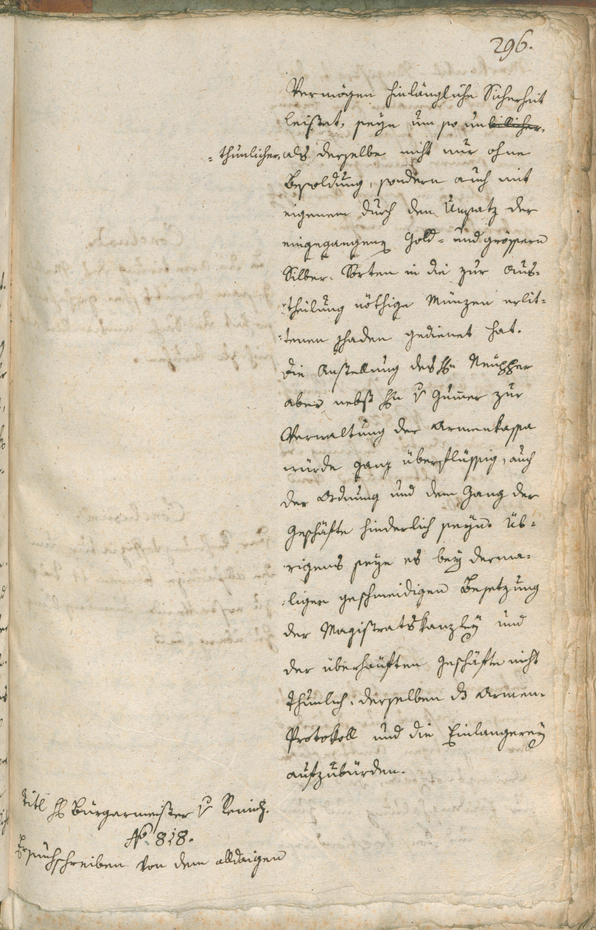 296.
Vermögen hinlängliche Sicherheit
leistet, seye um so unbilicher,
=thunlicher, als derselbe nicht nur ohne
Besoldung, sondern auch mit
eigenem durch den Umsatz der
eingegangenen Gold= und grössern
Silber-Sorten in die zur Aus=
=theilung nöthige Münzen erlit=
=tenen schaden gedienet hat.
Die Anstellung des H.
aber nebst H. v. Gumer zur
Verwaltung der Armenkassa
würde ganz überflüssig, auch
der Ordnung und dem Gang der
Geschäfte hinderlich seyn. Üb=
rigens seye es bey derma=
=ligen geschmeidigen Besetzung
der Magistratskanzley und
der überhäuften Geschäfte nicht
thunlich, derselben das Armen-
Protokoll und die Einlangerey
aufzubürden.
Titl H. Bürgermeister v.
No. 818.
Ersuchschreiben von dem alldaigen